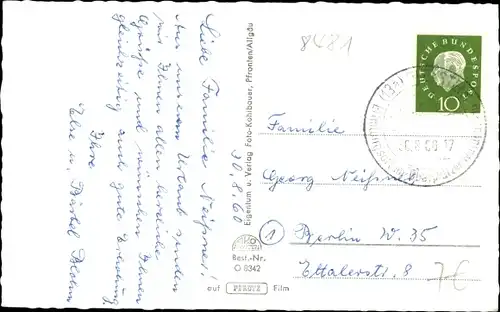 8481
Liebe Familie Neißner!
Aus unserem Urlaub senden
wir Ihnen allen herzliche
Grüße und wünschen Ihnen
gleichzeitig auch gute Erholung
Ihre
Else u. Bärbel
30.8.60
Eigentum u. Verlag Foto-Kohlbauer, Pfronten/Allgäu
Best.-Nr.
O 8342
auf PERUTZ Film
DEUTSCHE BUNDESPOST
10
8.60-17
Familie
Georg Neißner
1 Berlin W. 35
Ettalerstr. 8
7€